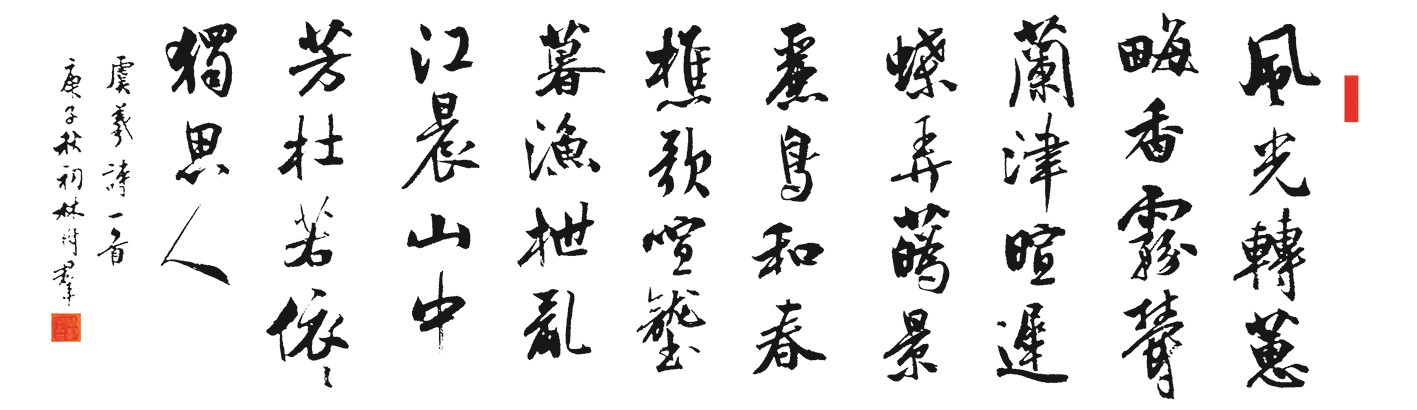 風光轉蕙
畮香霧鬱
蘭津暄遲
蝶弄蕚景
麗鳥和春
樵歌喧壟
暮漁枻亂
江晨山中
芳杜若依〻
獨思人
虞羲詩一首
庚子秋初林羣